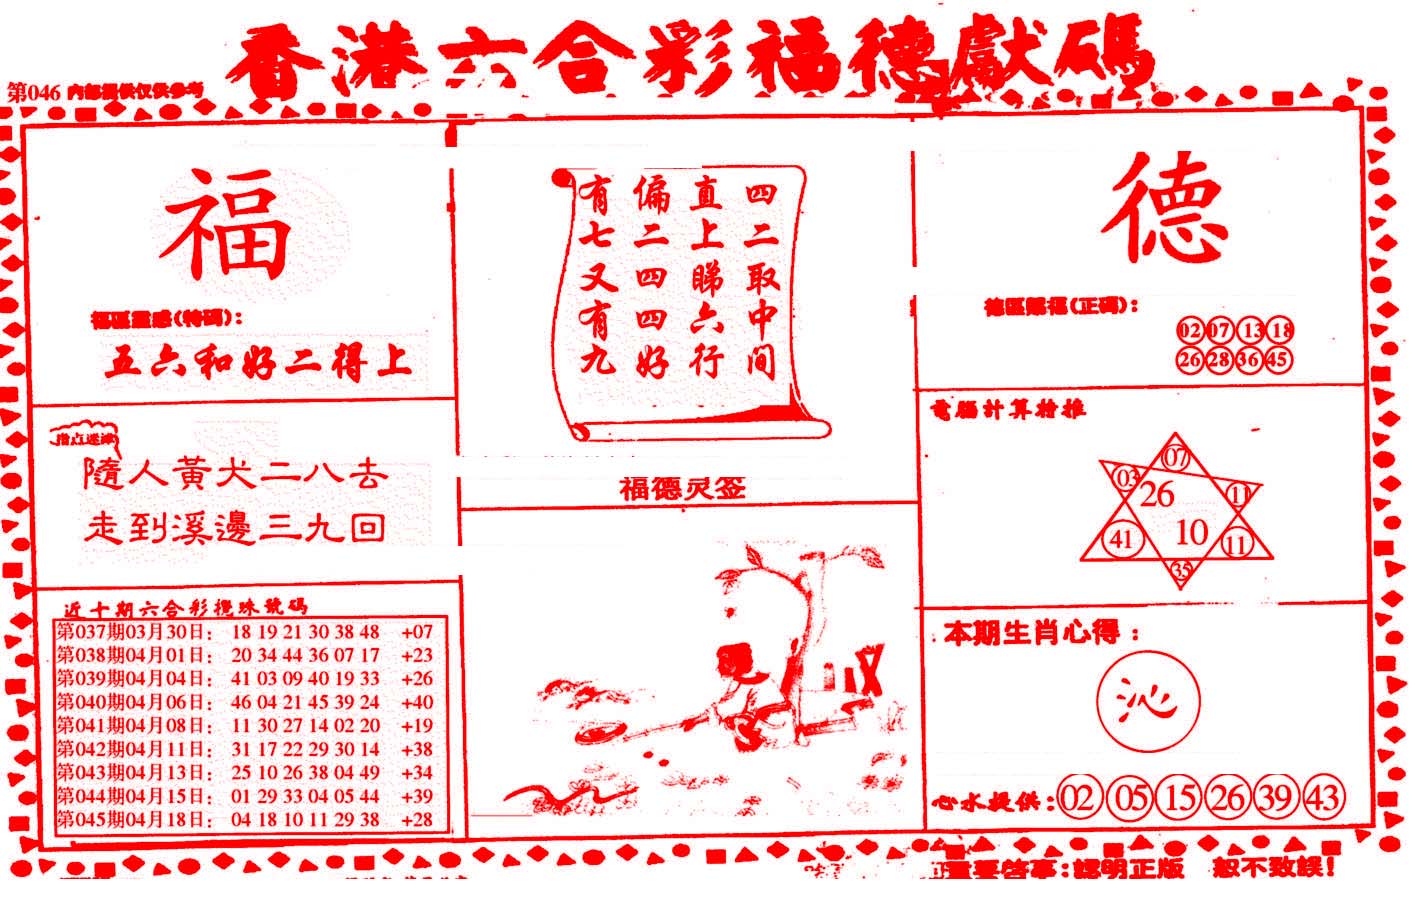 香港六合彩福德獻碼
第046 内部提供仅供参考
福
福區靈感(特碼):
五六和好二得上
指点迷津
隨人黃犬二八去
走到溪邊三九回
近十期六合彩攪珠號碼
第037期03月30日: 18 19 21 30 38 48 +07
第038期04月01日: 20 34 44 36 07 17 +23
第039期04月04日: 41 03 09 40 19 33 +26
第040期04月06日: 46 04 21 45 39 24 +40
第041期04月08日: 11 30 27 14 02 20 +19
第042期04月11日: 31 17 22 29 30 14 +38
第043期04月13日: 25 10 26 38 04 49 +34
第044期04月15日: 01 29 33 04 05 44 +39
第045期04月18日: 04 18 10 11 29 38 +28
四二取中间
直上睇六行
偏二四四好
有七又有九
福德灵签
德
德區賜福(正碼):
02 07 13 18
26 28 36 45
電腦計算特推
07
03 26 11
41 10 11
35
本期生肖心得:
沁
心水提供: 02 05 15 26 39 43
重要啓事:認明正版 恕不致誤!